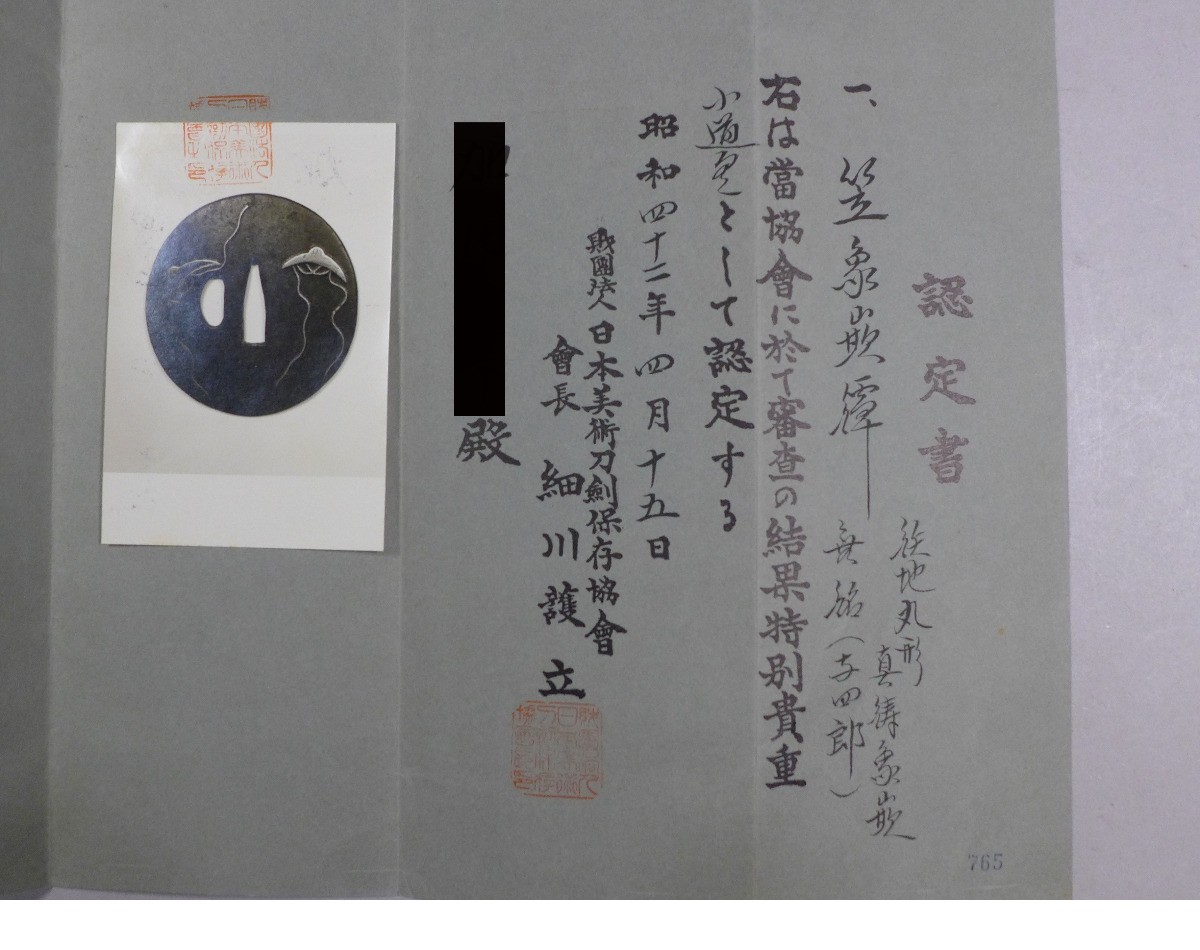 認定書
一、笠象嵌鐔
鉄地丸形
真鍮象嵌
無銘(与四郎)
右は當協會に於て審査の結果特別貴重
小道具として認定する
昭和四十二年四月十五日
財團法人日本美術刀劍保存協會
會長 細川護立
殿
765